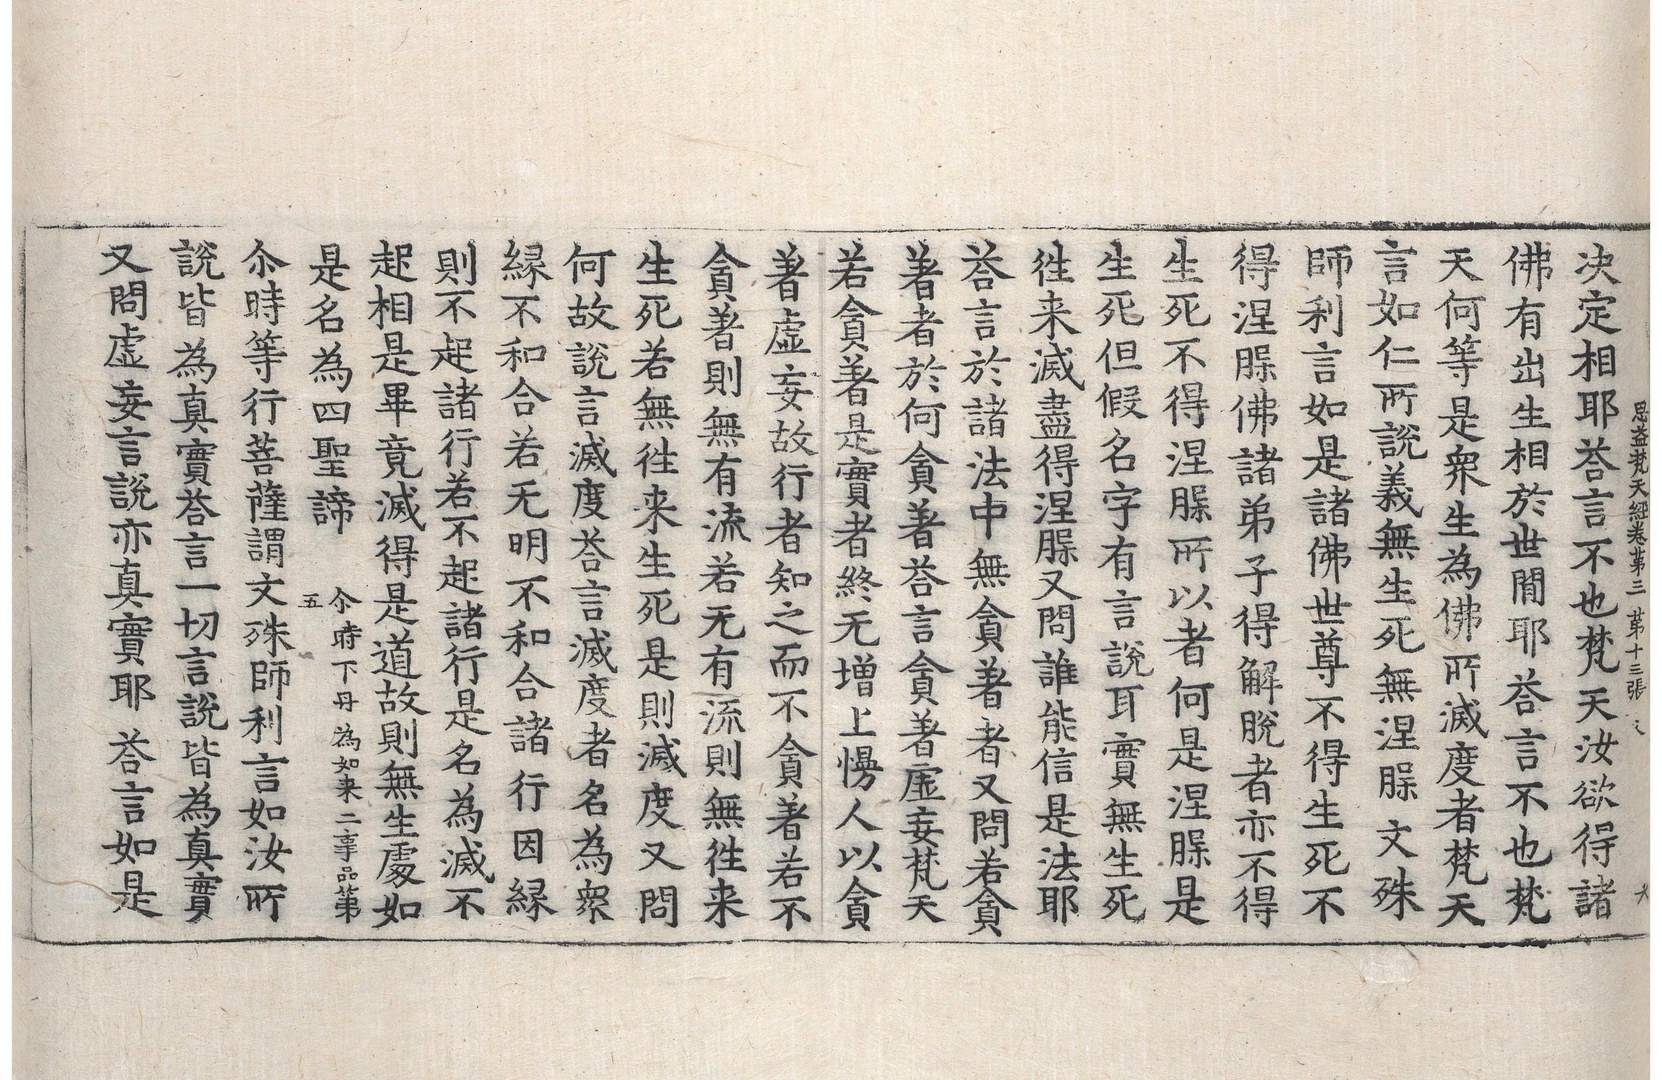 思益梵天經卷第三 第十三張
决定相耶荅言不也梵天汝欲得諸
佛有出生相於世閒耶荅言不也梵
天何等是衆生為佛所滅度者梵天
言如仁所說義無生死無涅槃文殊
師利言如是諸佛世尊不得生死不
得涅槃佛諸弟子得解脫者亦不得
生死不得涅槃所以者何是涅槃是
生死但假名字有言說耳實無生死
徃来滅盡得涅槃又問誰能信是法耶
荅言於諸法中無貪著者又問若貪
著者於何貪著荅言貪著虛妄梵天
若貪著是實者終无增上慢人以貪
著虛妄故行者知之而不貪著若不
貪著則無有流若无有流則無徃来
生死若無徃来生死是則滅度又問
何故說言滅度荅言滅度者名為衆
緣不和合若无明不和合諸行因緣
則不起諸行若不起諸行是名為滅不
起相是畢竟滅得是道故則無生處如
是名為四聖諦 尒時下丹為如来二事品第五
尒時等行菩薩謂文殊師利言如汝所
說皆為真實荅言一切言說皆為真實
又問虛妄言說亦真實耶荅言如是